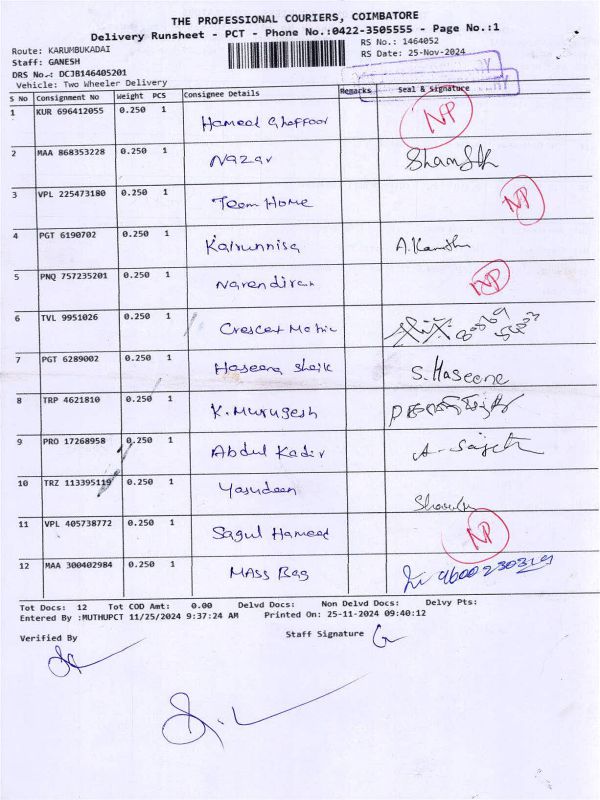 THE PROFESSIONAL COURIERS, COIMBATORE
Delivery Runsheet - PCT - Phone No.:0422-3505555 - Page No.:1
Route: KARUMBUKADAI RS No.: 1464052
Staff: GANESH RS Date: 25-Nov-2024
DRS No.: DCJB146405201
Vehicle: Two Wheeler Delivery
S No Consignment No Weight PCS Consignee Details Remarks Seal & Signature
1 KUR 696412055 0.250 1 Hameed Ghaffoor NP
2 MAA 868353228 0.250 1 Nazar
3 VPL 225473180 0.250 1 Team Home NP
4 PGT 6190702 0.250 1 Kairunnisa
5 PNQ 757235201 0.250 1 Narendiran NP
6 TVL 9951026 0.250 1 Crescent
7 PGT 6289002 0.250 1 Haseena Sheik S. Haseena
8 TRP 4621810 0.250 1 K. Murugesh
9 PRO 17268958 0.250 1 Abdul Kadir
10 TRZ 113395119 0.250 1 Yasudeen
11 VPL 405738772 0.250 1 Sagul Hameed NP
12 MAA 300402984 0.250 1 Mass Bag 9600230319
Tot Docs: 12 Tot COD Amt: 0.00 Delvd Docs: Non Delvd Docs: Delvy Pts:
Entered By :MUTHUPCT 11/25/2024 9:37:24 AM Printed On: 25-11-2024 09:40:12
Verified By Staff Signature